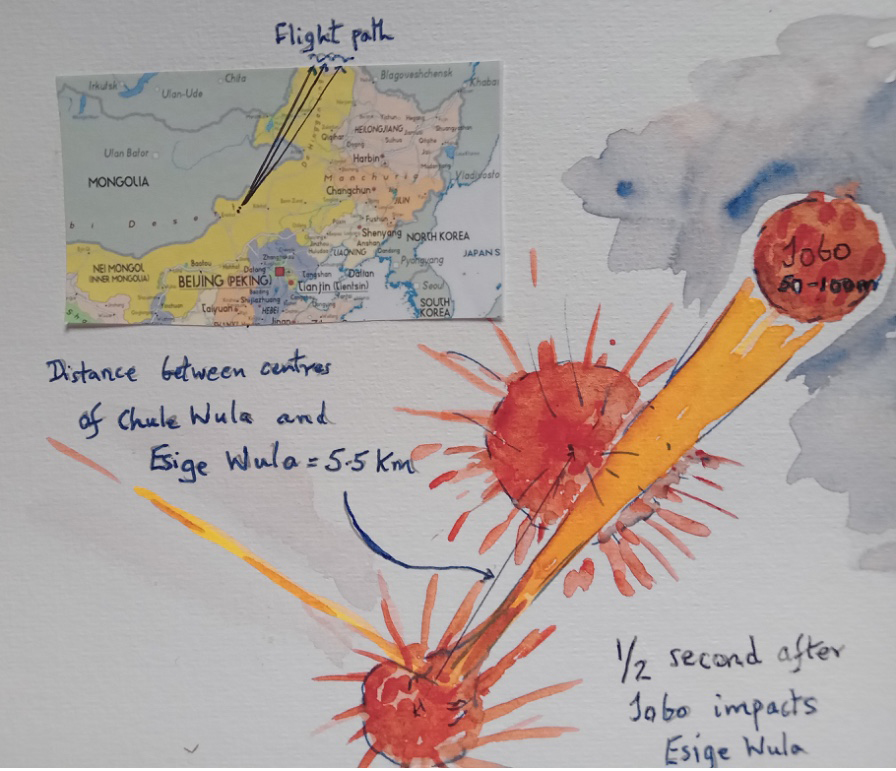 Flight path
Irkutsk
Chifa
Blagoveshchensk
Khabar
Ulan-Ude
HEILONGJIANG
Qiqihar
Ulan Bator
Harbin
MONGOLIA
Manchuria
Vladivosto
Changchun
JILIN
Fushun
bi Dese
Shenyang
Anshan
NORTH KOREA
LIAONING
JAPAN S
Pyongyang
NEI MONGOL
(INNER MONGOLIA)
Baotou
Datong
BEIJING (PEKING)
Tangshan
Dalian
Tianjin (Tientsin)
Seoul
Shijiazhuang
Taiyuan
HEBEI
SOUTH
KOREA
Jobo
50-100m
Distance between centres
of Chule Wula and
Esige Wula = 5.5 Km
1/2 second after
Jobo impacts
Esige Wula